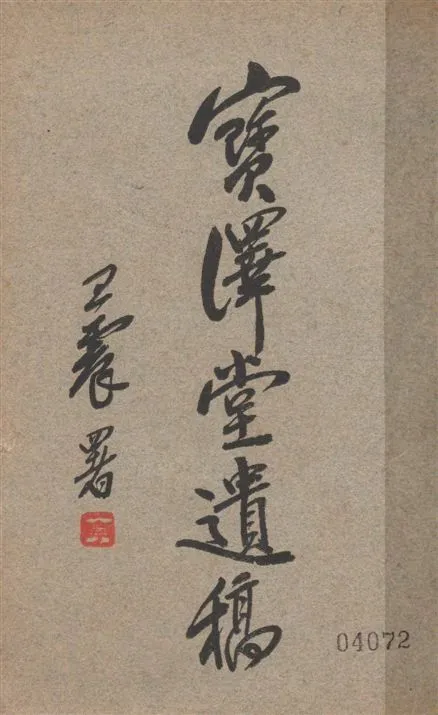 寶澤堂遺稿
王震署
04072